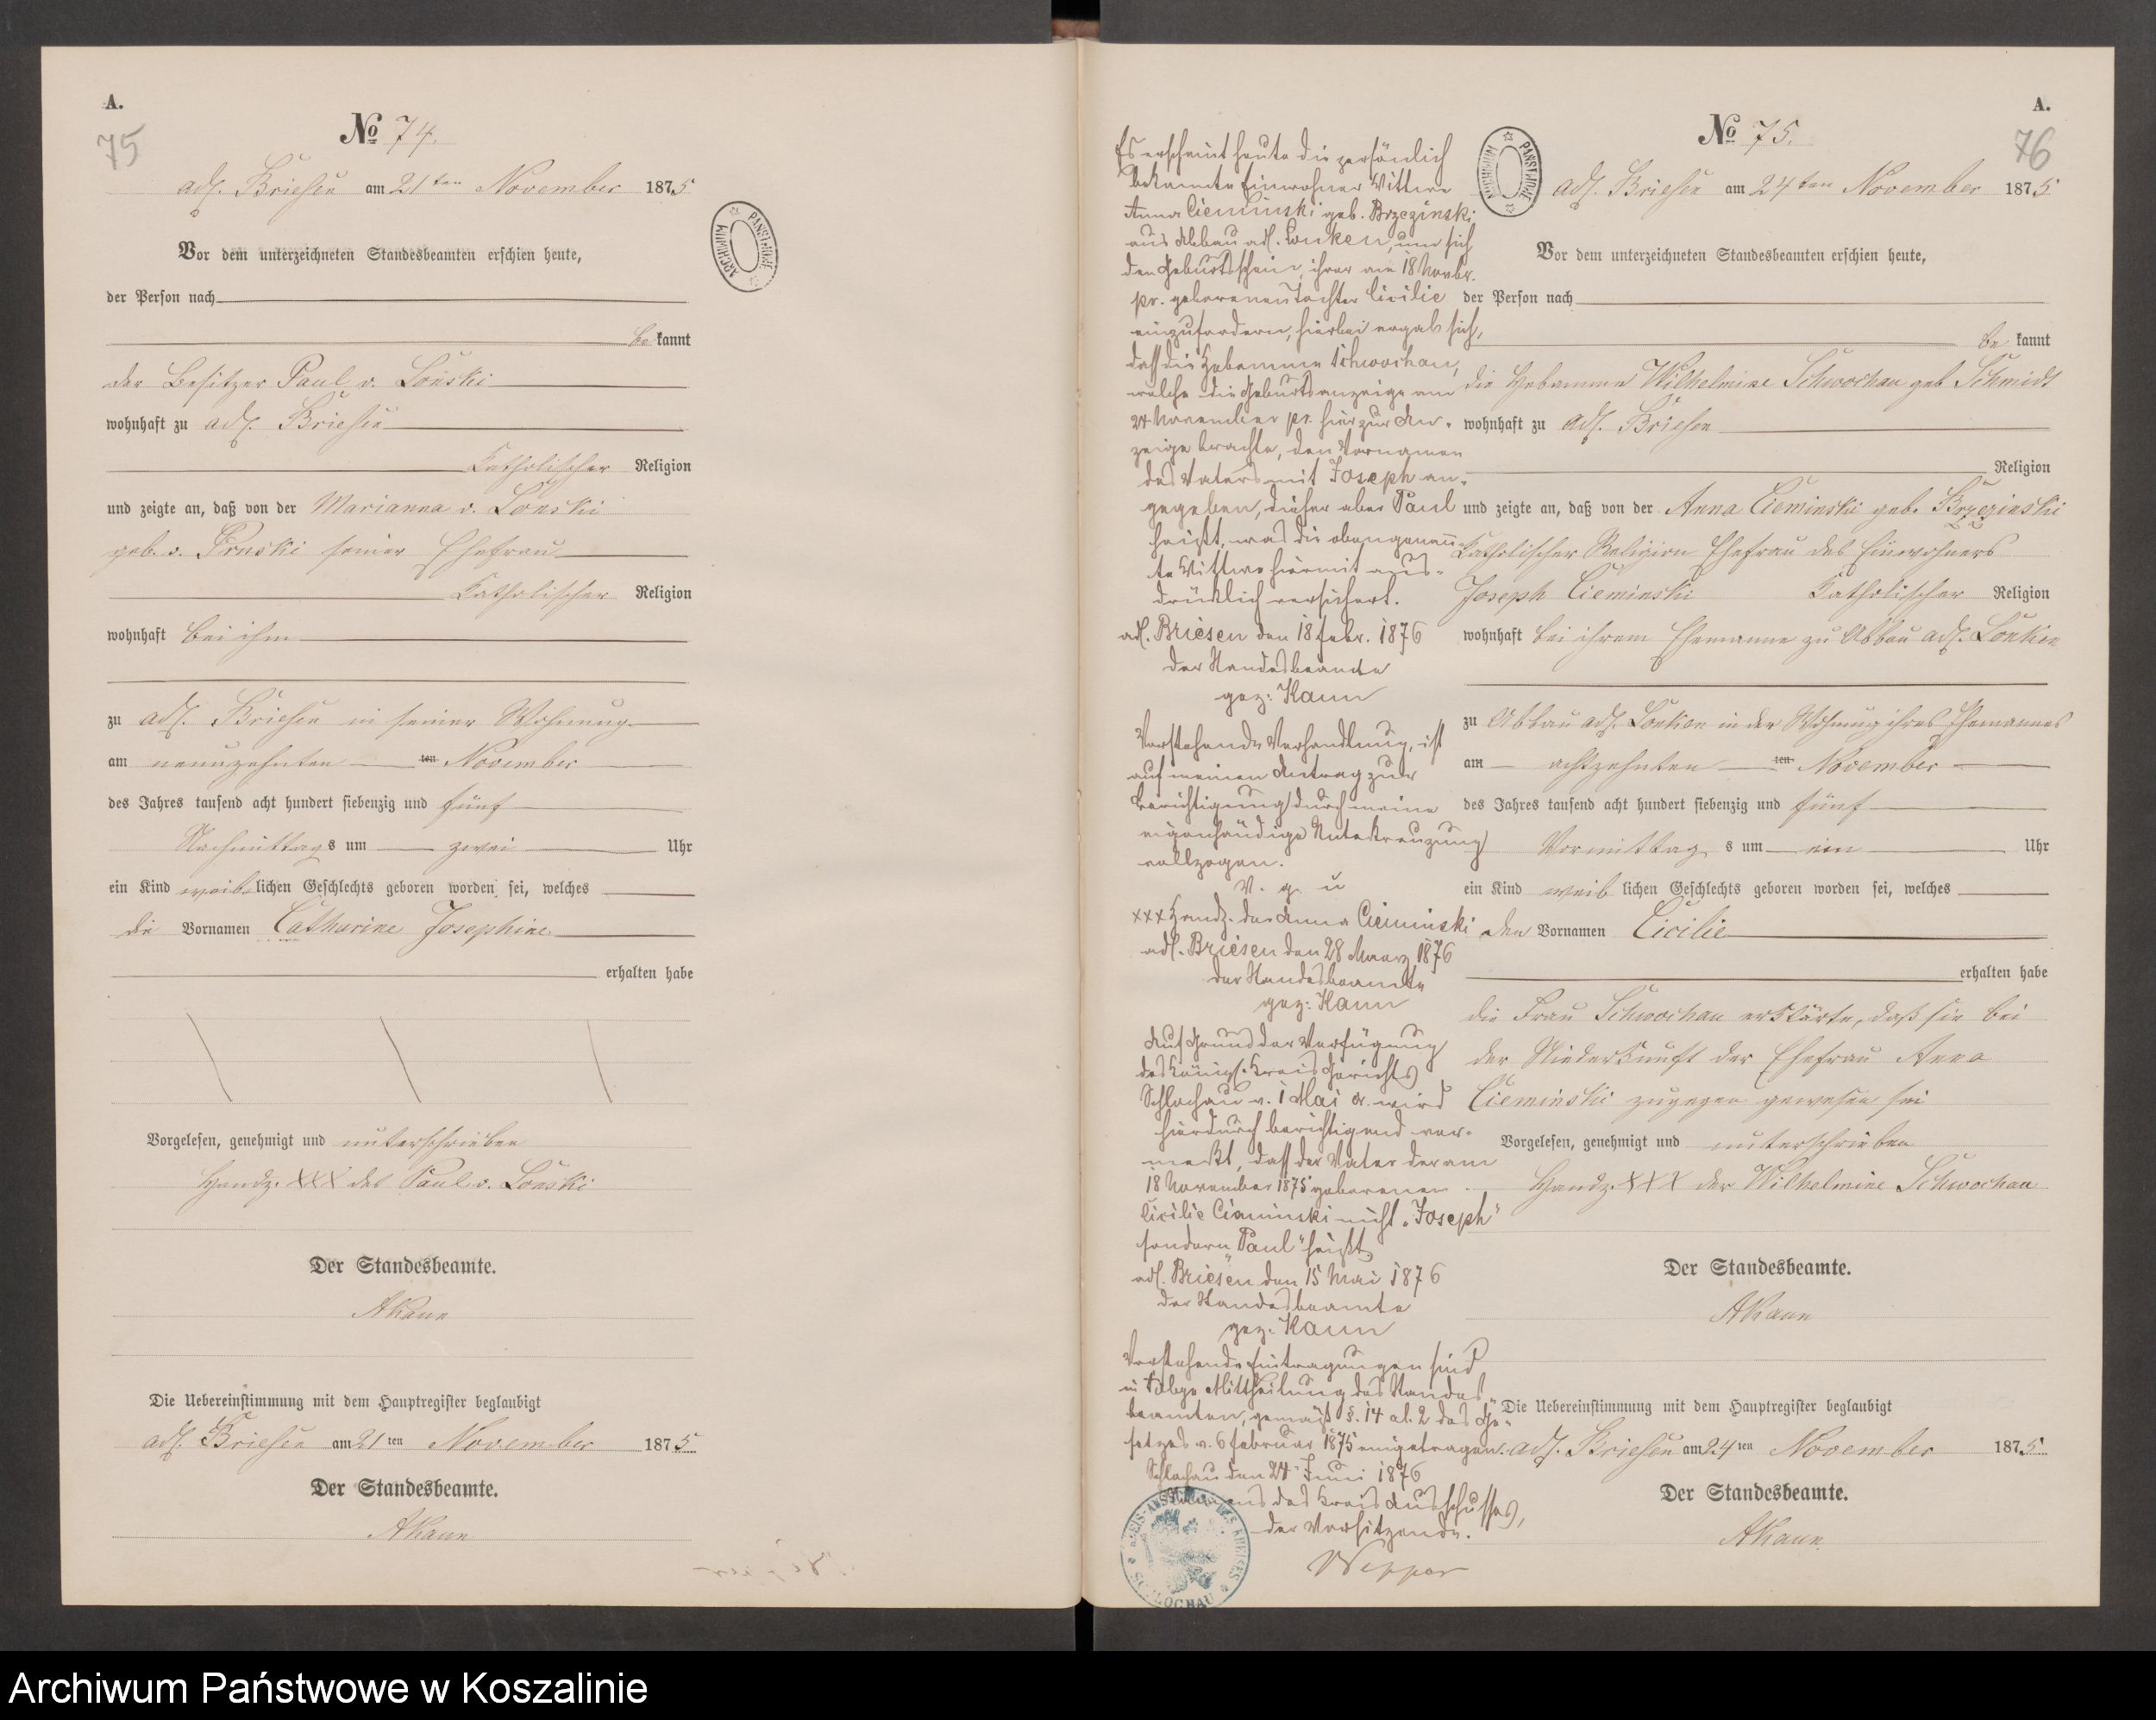 A.
75
№ 74.
adl. Briesen am 21ten November 1875
Vor dem unterzeichneten Standesbeamten erschien heute,
der Person nach
bekannt
der Besitzer Paul v. Lonski
wohnhaft zu adl. Briesen
Katholischer Religion
und zeigte an, daß von der Marianna v. Lonski
geb. v. Pruski seiner Ehefrau
Katholischer Religion
wohnhaft bei ihm
zu adl. Briesen in seiner Wohnung
am neunzehnten ten November
des Jahres tausend acht hundert siebenzig und fünf
Nachmittags um zwei Uhr
ein Kind weiblichen Geschlechts geboren worden sei, welches
die Vornamen Catharine Josephine
erhalten habe
Vorgelesen, genehmigt und unterschrieben
Handz. XXX des Paul v. Lonski
Der Standesbeamte.
AKann
Die Uebereinstimmung mit dem Hauptregister beglaubigt
adl. Briesen am 21ten November 1875
Der Standesbeamte.
AKann
ARCHIWUM PAŃSTWOWE
Es erscheint heute die persönlich
bekannte Einwohner Wittwe
Anna Cieminski geb. Brzezinski
aus Abbau adl. Lonken, um sich
den Geburtsschein ihrer am 18 Novbr.
pr. geborenen Tochter Cicilie
einzufordern, hierbei ergab sich,
daß die Hebamme Schwochau,
welche die Geburtsanzeige am
24 November pr. hier zur An-
zeige brachte, den Vornamen
des Vaters mit Joseph an-
gegeben, dieser aber Paul
heißt, was die obengenann-
te Wittwe hiermit aus-
drücklich versichert.
adl. Briesen den 18 Febr. 1876
der Standesbeamte
gez: Kann
Vorstehende Verhandlung, ist
auf meinen Antrag zur
Berichtigung durch meine
eigenhändige Unterkreuzung
vollzogen.
V. g. u
xxx Handz. der Anna Cieminski
adl. Briesen den 28 Maerz 1876
der Standesbeamte
gez: Kann
Auf Grund der Verfügung
des Königl. Kreis Gerichts
Schlochau v. 1 Mai cr. wird
hierdurch berichtigend ver-
merkt, daß der Vater der am
18 November 1875 geborenen
Cicilie Cieminski nicht „Joseph"
sondern „Paul" heißt
adl. Briesen den 15 Mai 1876
der Standesbeamte
gez: Kann
Vorstehende Eintragungen sind
in Folge Mittheilung des Standes-
beamten, gemäß §. 14 al. 2 des Ge-
setzes v. 6 Februar 1875 eingetragen.
Schlochau den 24 Juni 1876
Namens des Kreis Ausschusses,
der Vorsitzende.
KREIS-AUSSCHUSS DES KREISES SCHLOCHAU
ARCHIWUM PAŃSTWOWE
A.
76
№ 75.
adl. Briesen am 24ten November 1875
Vor dem unterzeichneten Standesbeamten erschien heute,
der Person nach
bekannt
die Hebamme Wilhelmine Schwochau geb Schmidt
wohnhaft zu adl. Briesen
Religion
und zeigte an, daß von der Anna Cieminski geb. Brzezinski
Katholischer Religion Ehefrau des Einwohners
Joseph Cieminski Katholischer Religion
wohnhaft bei ihrem Ehemanne zu Abbau adl. Lonken
zu Abbau adl. Lonken in der Wohnung ihres Ehemannes
am achtzehnten ten November
des Jahres tausend acht hundert siebenzig und fünf
Vormittags um ein Uhr
ein Kind weiblichen Geschlechts geboren worden sei, welches
den Vornamen Cicilie
erhalten habe
die Frau Schwochau erklärte, daß sie bei
der Niederkunft der Ehefrau Anna
Cieminski zugegen gewesen sei
Vorgelesen, genehmigt und unterschrieben
Handz. XXX der Wilhelmine Schwochau
Der Standesbeamte.
AKann
Die Uebereinstimmung mit dem Hauptregister beglaubigt
adl. Briesen am 24ten November 1875
Der Standesbeamte.
AKann
Archiwum Państwowe w Koszalinie